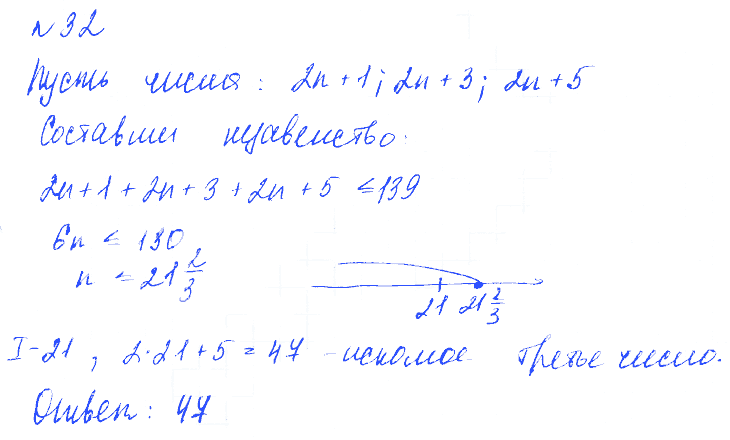 №32
Пусть числа: 2n+1; 2n+3; 2n+5
Составим неравенство.
2n+1+2n+3+2n+5 ≤139
6n ≤ 130
n ≤ 21 2/3
21 21 2/3
I-21, 2·21+5=47 -искомое третье число.
Ответ: 47